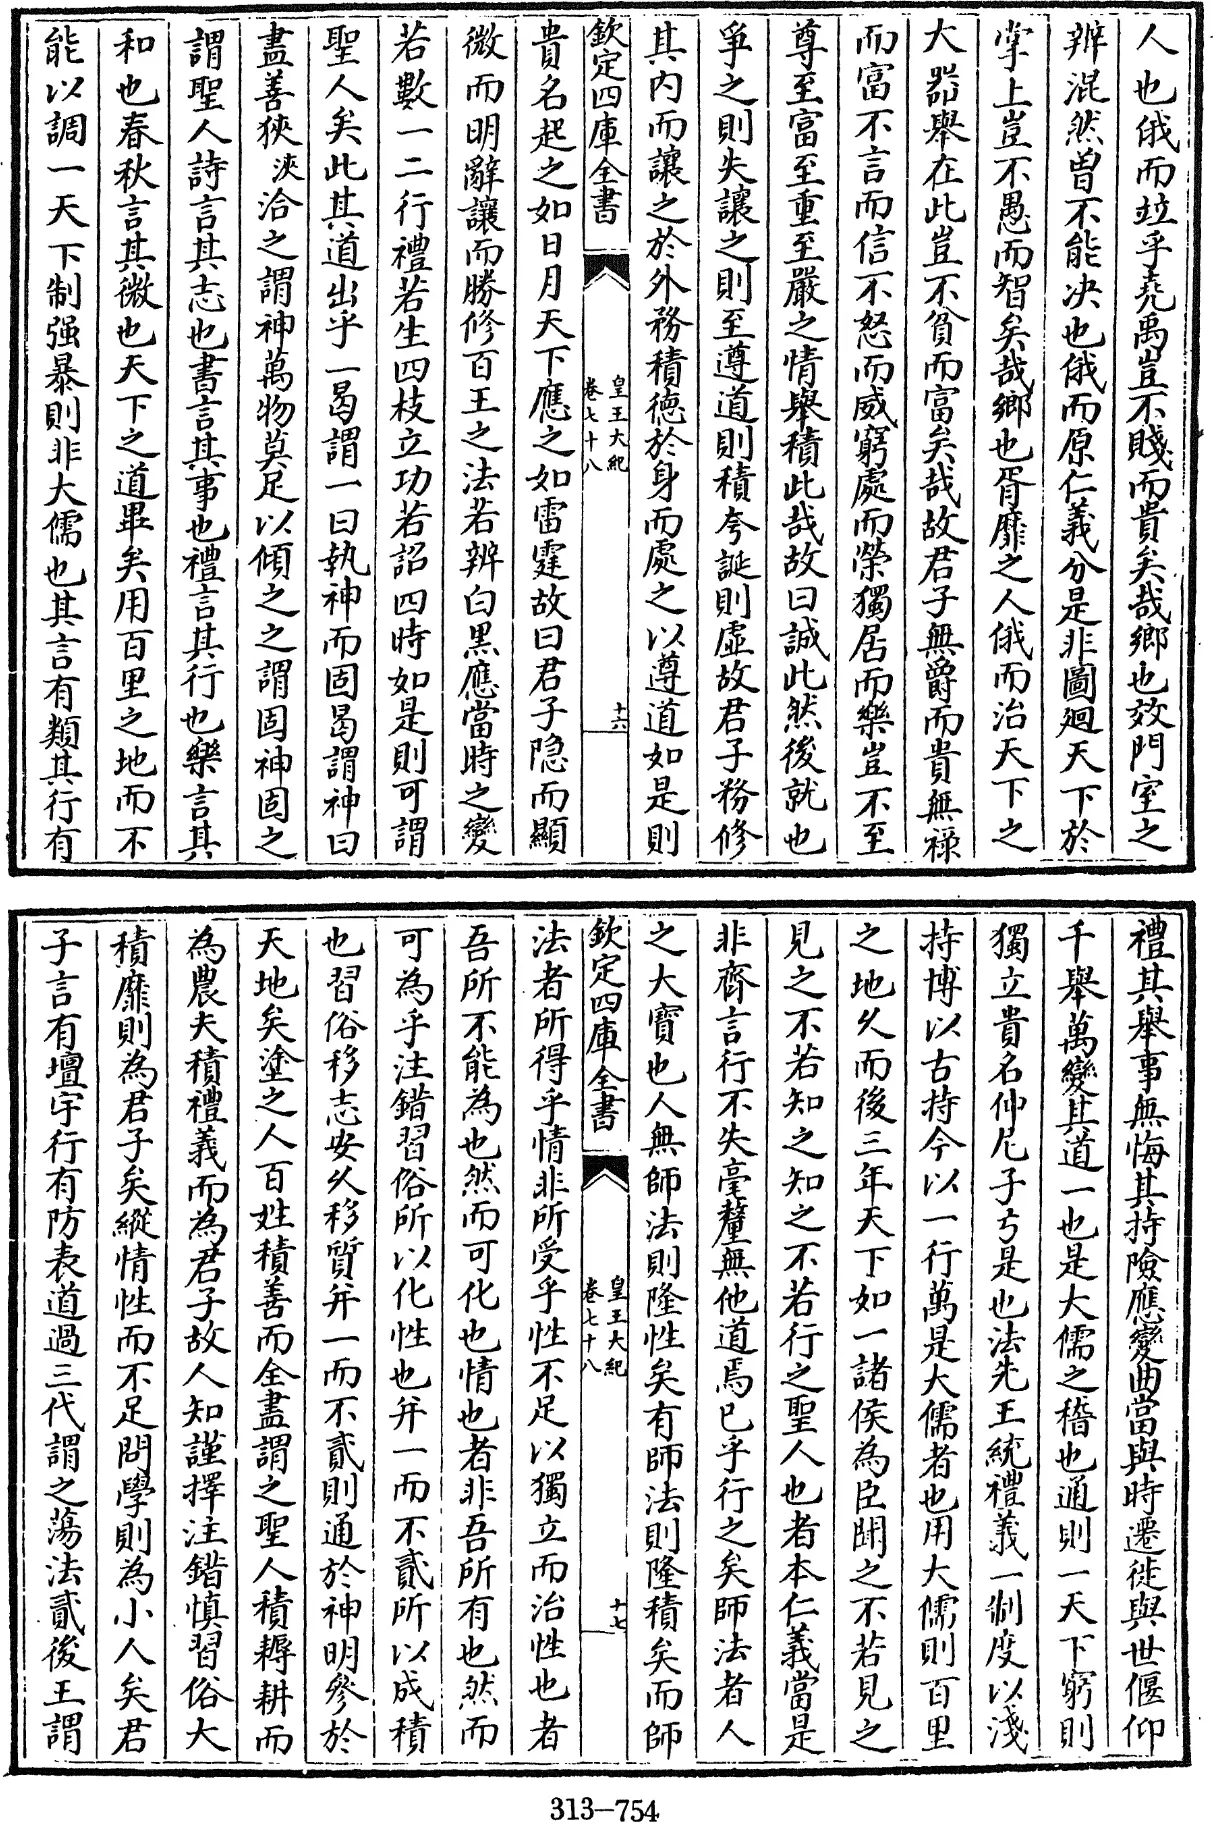 人也俄而竝乎堯禹豈不賤而貴矣哉鄉也效門室之
辨混然曽不能决也俄而原仁義分是非圖廻天下於
掌上豈不愚而智矣哉鄉也胥靡之人俄而治天下之
大器舉在此豈不貧而富矣哉故君子無爵而貴無祿
而富不言而信不怒而威窮處而榮獨居而樂豈不至
尊至富至重至嚴之情舉積此哉故曰誠此然後就也
爭之則失讓之則至遵道則積夸誕則虛故君子務修
其内而讓之於外務積德於身而處之以遵道如是則
欽定四庫全書
皇王大紀
卷七十八
十六
貴名起之如日月天下應之如雷霆故曰君子隐而顯
微而明辭讓而勝修百王之法若辨白黒應當時之變
若數一二行禮若生四枝立功若詔四時如是則可謂
聖人矣此其道出乎一曷謂一曰執神而固曷謂神曰
盡善狹浹洽之謂神萬物莫足以傾之之謂固神固之
謂聖人詩言其志也書言其事也禮言其行也樂言其
和也春秋言其微也天下之道畢矣用百里之地而不
能以調一天下制强暴則非大儒也其言有類其行有
禮其舉事無悔其持險應變曲當與時遷徙與世偃仰
千舉萬變其道一也是大儒之稽也通則一天下窮則
獨立貴名仲尼子弓是也法先王統禮義一制度以淺
持博以古持今以一行萬是大儒者也用大儒則百里
之地久而後三年天下如一諸侯為臣聞之不若見之
見之不若知之知之不若行之聖人也者本仁義當是
非齊言行不失毫釐無他道焉已乎行之矣師法者人
之大寶也人無師法則隆性矣有師法則隆積矣而師
欽定四庫全書
皇王大紀
卷七十八
十七
法者所得乎情非所受乎性不足以獨立而治性也者
吾所不能為也然而可化也情也者非吾所有也然而
可為乎注錯習俗所以化性也并一而不貳所以成積
也習俗移志安久移質并一而不貳則通於神明參於
天地矣塗之人百姓積善而全盡謂之聖人積耨耕而
為農夫積禮義而為君子故人知謹擇注錯慎習俗大
積靡則為君子矣縱情性而不足問學則為小人矣君
子言有壇宇行有防表道過三代謂之蕩法貳後王謂
313-754